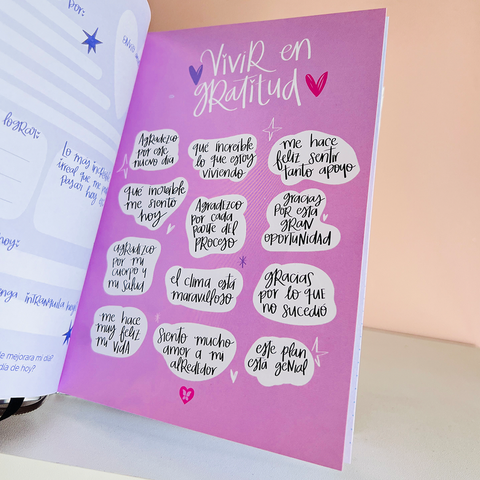 por:
lograr:
hoy:
e mejorara mi día?
día de hoy?
Vivir en
gratitud
Agradezco
por este
nuevo dia
qué increíble
lo que estoy
viviendo
me hace
feliz sentir
tanto apoyo
qué increíble
me siento
hoy
Agradezco
por cada
parte del
proceso
gracias
por esta
gran
oportunidad
agradezco
por mi
cuerpo y
mi salud
el clima está
maravilloso
gracias
por lo que
no sucedió
me hace
muy feliz
mi vida
siento mucho
amor a mi
alrededor
este plan
está genial